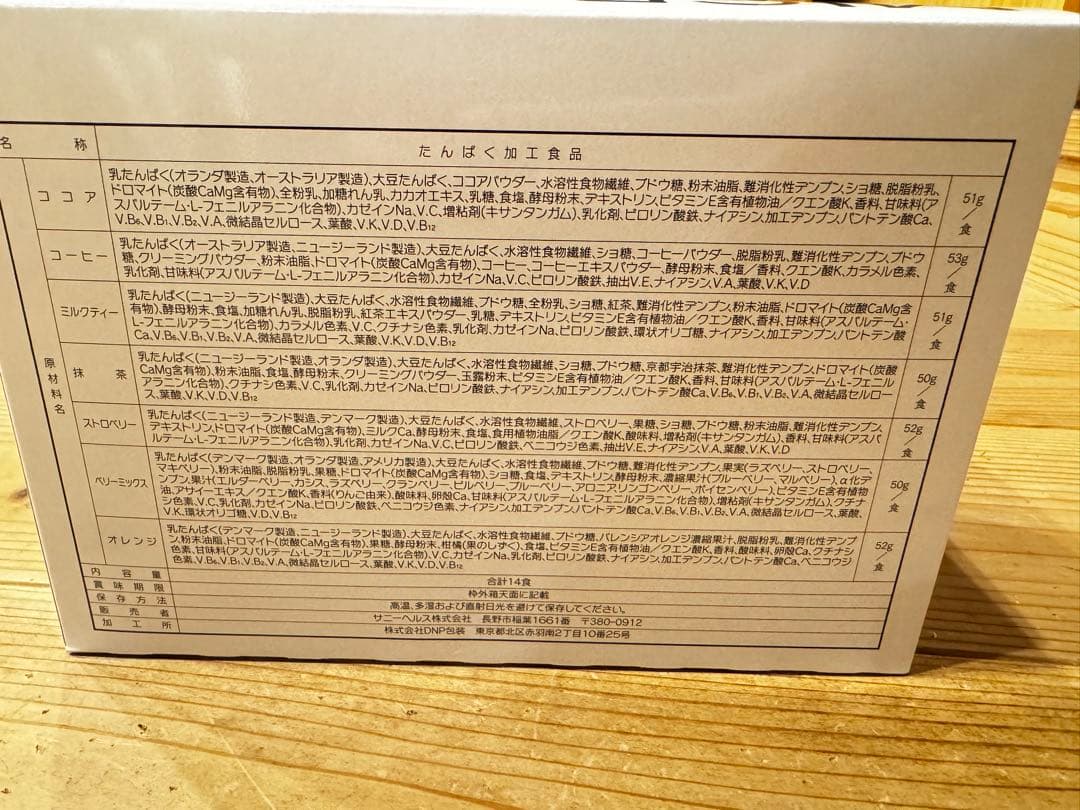 名 称 たんぱく加工食品
原材料名
ココア
乳たんぱく(オランダ製造、オーストラリア製造)、大豆たんぱく、ココアパウダー、水溶性食物繊維、ブドウ糖、粉末油脂、難消化性デンプン、ショ糖、脱脂粉乳、
ドロマイト(炭酸CaMg含有物)、全粉乳、加糖れん乳、カカオエキス、乳糖、食塩、酵母粉末、デキストリン、ビタミンE含有植物油／クエン酸K、香料、甘味料(ア
スパルテーム・L-フェニルアラニン化合物)、カゼインNa、V.C、増粘剤(キサンタンガム)、乳化剤、ピロリン酸鉄、ナイアシン、加工デンプン、パントテン酸Ca、
V.B₆、V.B₁、V.B₂、V.A、微結晶セルロース、葉酸、V.K、V.D、V.B₁₂
51g／食
コーヒー
乳たんぱく(オーストラリア製造、ニュージーランド製造)、大豆たんぱく、水溶性食物繊維、ショ糖、コーヒーパウダー、脱脂粉乳、難消化性デンプン、ブドウ
糖、クリーミングパウダー、粉末油脂、ドロマイト(炭酸CaMg含有物)、コーヒー、コーヒーエキスパウダー、酵母粉末、食塩／香料、クエン酸K、カラメル色素、
乳化剤、甘味料(アスパルテーム・L-フェニルアラニン化合物)、カゼインNa、V.C、ピロリン酸鉄、抽出V.E、ナイアシン、V.A、葉酸、V.K、V.D
53g／食
ミルクティー
乳たんぱく(ニュージーランド製造)、大豆たんぱく、水溶性食物繊維、ブドウ糖、全粉乳、ショ糖、紅茶、難消化性デンプン、粉末油脂、ドロマイト(炭酸CaMg含
有物)、酵母粉末、食塩、加糖れん乳、脱脂粉乳、紅茶エキスパウダー、乳糖、デキストリン、ビタミンE含有植物油／クエン酸K、香料、甘味料(アスパルテーム・
L-フェニルアラニン化合物)、カラメル色素、V.C、クチナシ色素、乳化剤、カゼインNa、ピロリン酸鉄、環状オリゴ糖、ナイアシン、加工デンプン、パントテン酸
Ca、V.B₆、V.B₁、V.B₂、V.A、微結晶セルロース、葉酸、V.K、V.D、V.B₁₂
51g／食
抹茶
乳たんぱく(ニュージーランド製造、オランダ製造)、大豆たんぱく、水溶性食物繊維、ショ糖、ブドウ糖、京都宇治抹茶、難消化性デンプン、ドロマイト(炭酸
CaMg含有物)、粉末油脂、食塩、酵母粉末、クリーミングパウダー、玉露粉末、ビタミンE含有植物油／クエン酸K、香料、甘味料(アスパルテーム・L-フェニル
アラニン化合物)、クチナシ色素、V.C、乳化剤、カゼインNa、ピロリン酸鉄、ナイアシン、加工デンプン、パントテン酸Ca、V.B₆、V.B₁、V.B₂、V.A、微結晶セルロー
ス、葉酸、V.K、V.D、V.B₁₂
50g／食
ストロベリー
乳たんぱく(ニュージーランド製造、デンマーク製造)、大豆たんぱく、水溶性食物繊維、ストロベリー、果糖、ショ糖、ブドウ糖、粉末油脂、難消化性デンプン、
デキストリン、ドロマイト(炭酸CaMg含有物)、ミルクCa、酵母粉末、食塩、食用植物油脂／クエン酸K、酸味料、増粘剤(キサンタンガム)、香料、甘味料(アスパ
ルテーム・L-フェニルアラニン化合物)、乳化剤、カゼインNa、V.C、ピロリン酸鉄、ベニコウジ色素、抽出V.E、ナイアシン、V.A、葉酸、V.K、V.D
52g／食
ベリーミックス
乳たんぱく(デンマーク製造、オランダ製造、アメリカ製造)、大豆たんぱく、水溶性食物繊維、ブドウ糖、難消化性デンプン、果実(ラズベリー、ストロベリー、
マキベリー)、粉末油脂、脱脂粉乳、果糖、ドロマイト(炭酸CaMg含有物)、ショ糖、食塩、デキストリン、酵母粉末、濃縮果汁(ブルーベリー、マルベリー)、α化デ
ンプン、果汁(エルダーベリー、カシス、ラズベリー、クランベリー、ビルベリー、ブルーベリー、アロニア、リンゴンベリー、ボイセンベリー)、ビタミンE含有植物
油、アサイーエキス／クエン酸K、香料(りんご由来)、酸味料、卵殻Ca、甘味料(アスパルテーム・L-フェニルアラニン化合物)、増粘剤(キサンタンガム)、クチナ
シ色素、V.C、乳化剤、カゼインNa、ピロリン酸鉄、ベニコウジ色素、ナイアシン、加工デンプン、パントテン酸Ca、V.B₆、V.B₁、V.B₂、V.A、微結晶セルロース、葉酸、
V.K、環状オリゴ糖、V.D、V.B₁₂
50g／食
オレンジ
乳たんぱく(デンマーク製造、ニュージーランド製造)、大豆たんぱく、水溶性食物繊維、ブドウ糖、バレンシアオレンジ濃縮果汁、脱脂粉乳、難消化性デンプ
ン、粉末油脂、ドロマイト(炭酸CaMg含有物)、果糖、酵母粉末、柑橘(果のしずく)、食塩、ビタミンE含有植物油／クエン酸K、香料、酸味料、卵殻Ca、クチナシ
色素、甘味料(アスパルテーム・L-フェニルアラニン化合物)、V.C、カゼインNa、乳化剤、ピロリン酸鉄、ナイアシン、加工デンプン、パントテン酸Ca、ベニコウジ
色素、V.B₆、V.B₁、V.B₂、V.A、微結晶セルロース、葉酸、V.K、V.D、V.B₁₂
52g／食
内容量 合計14食
賞味期限 枠外箱天面に記載
保存方法 高温、多湿および直射日光を避けて保存してください。
販売者 サニーヘルス株式会社 長野市稲葉1661番 〒380-0912
加工所 株式会社DNP包装 東京都北区赤羽南2丁目10番25号